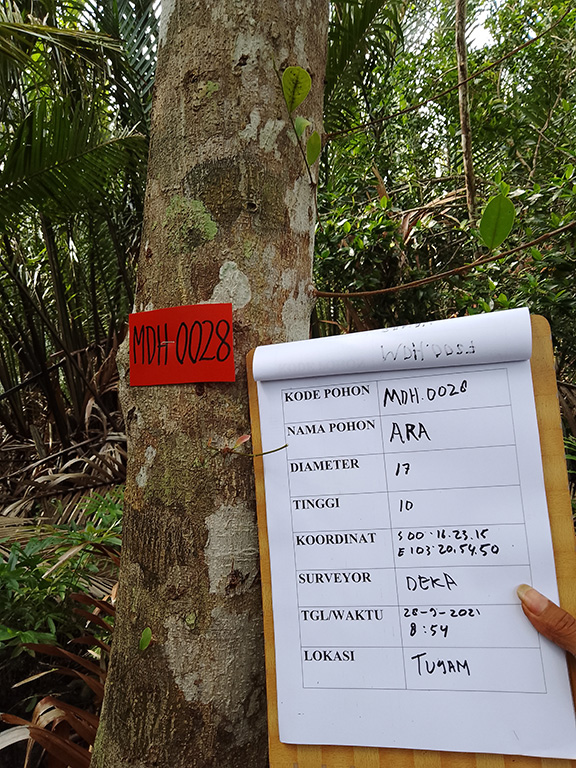 MDH-0028
KODE POHON MDH.0028
NAMA POHON ARA
DIAMETER 17
TINGGI 10
KOORDINAT S 00.16.23.15
E 103.20.54.50
SURVEYOR DEKA
TGL/WAKTU 28-9-2021
8:54
LOKASI TUGAM